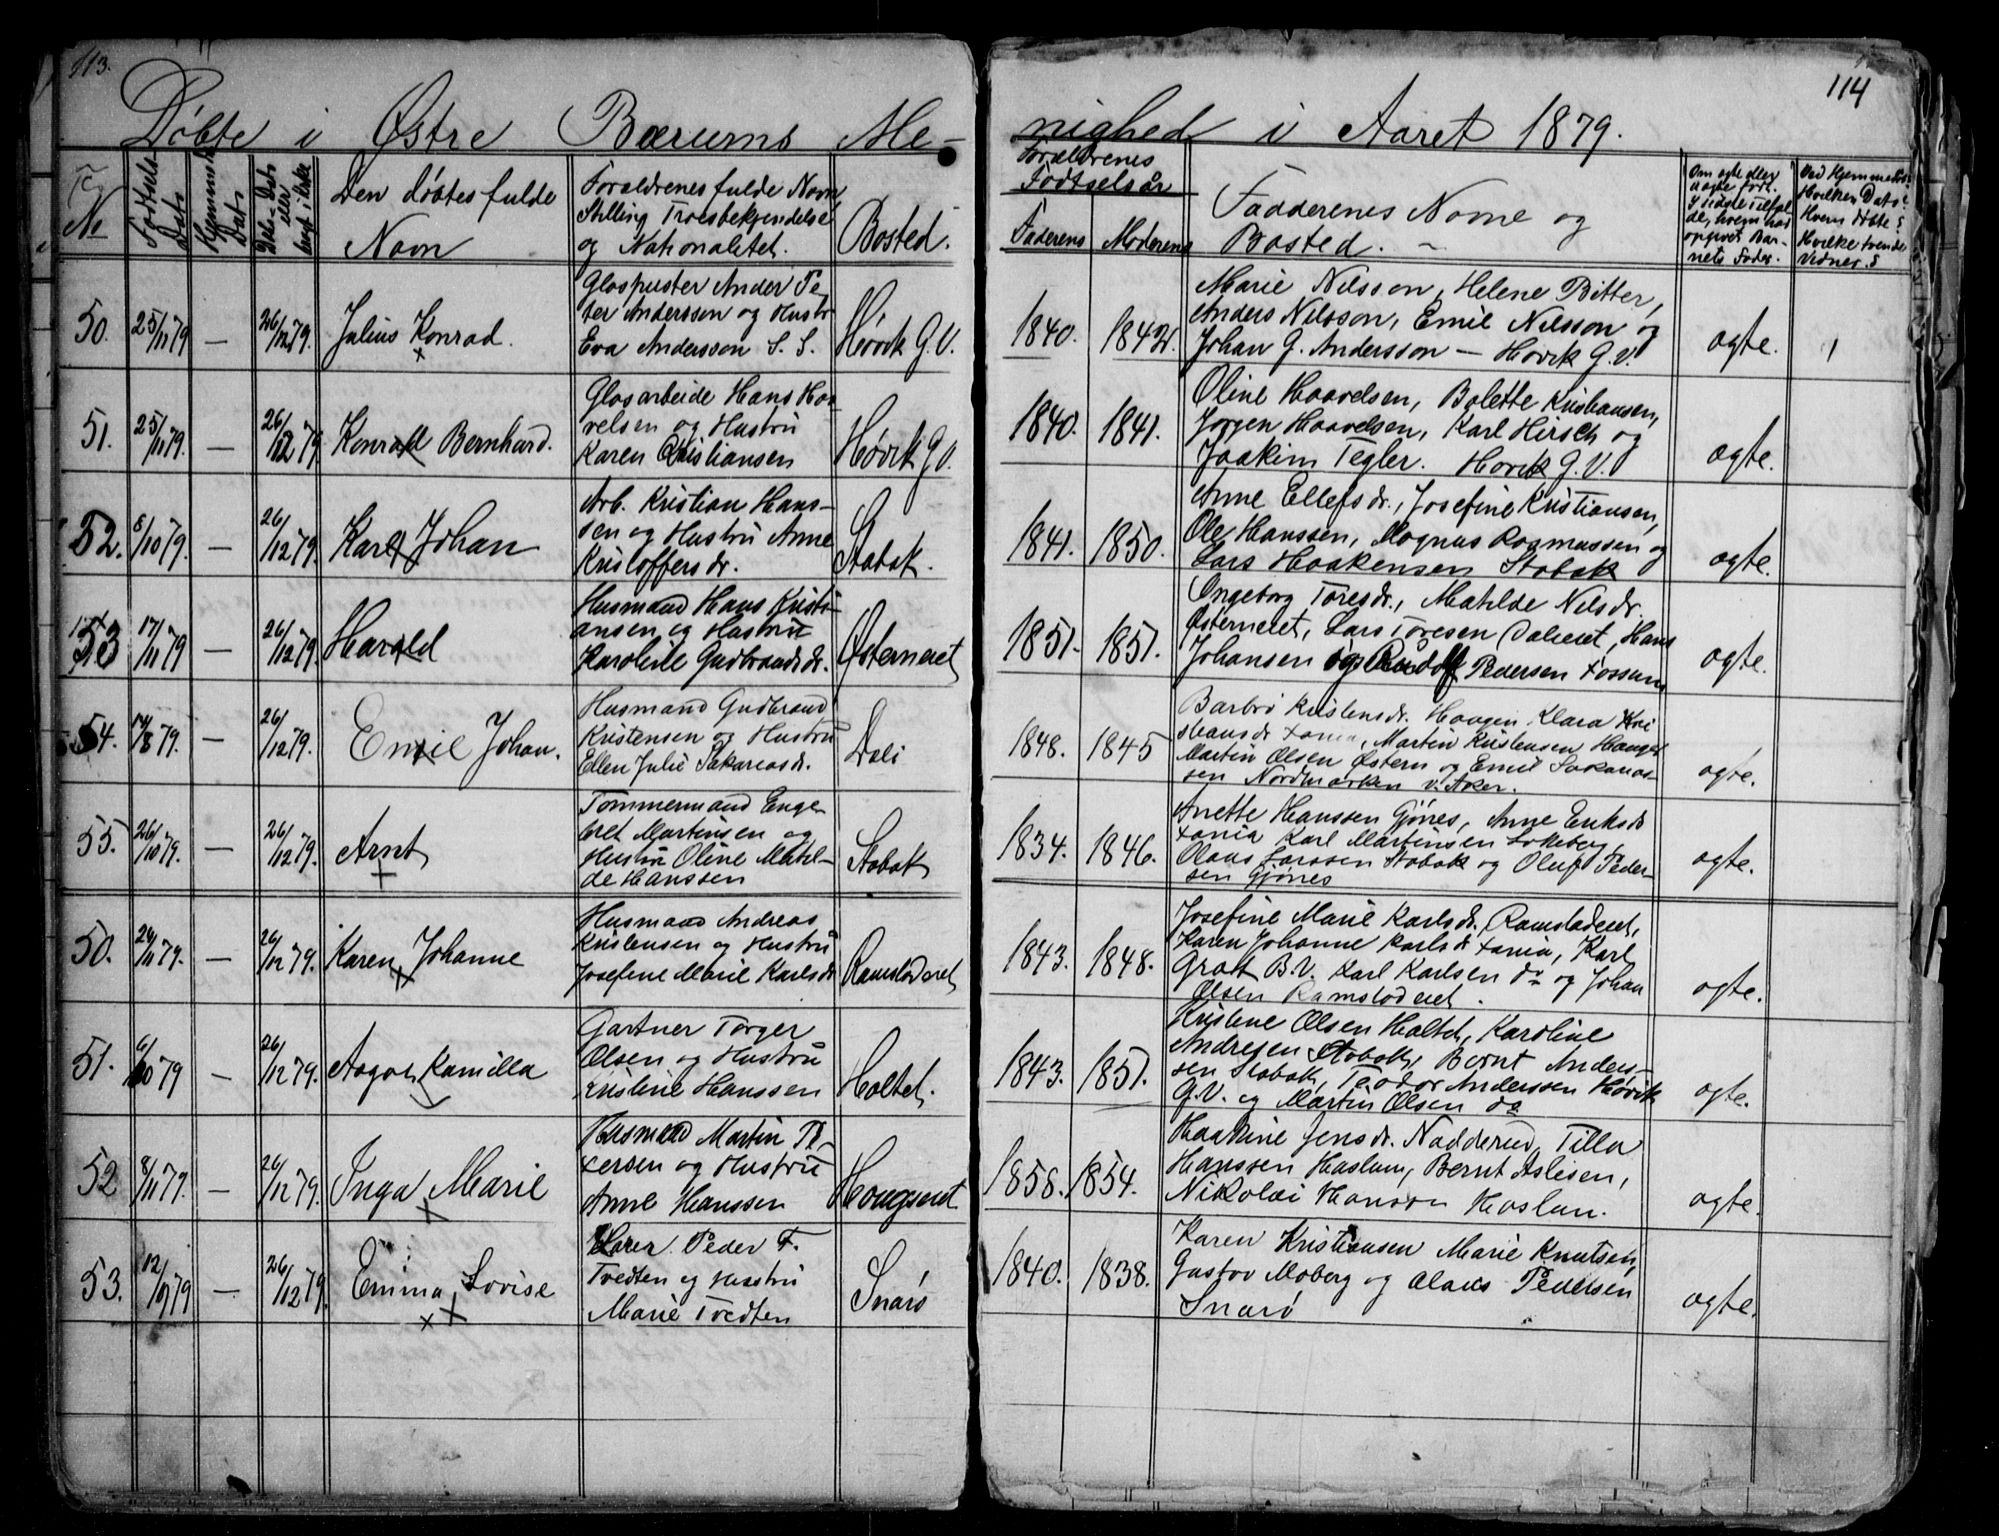 113.
114
Døbte i Østre Bærums Me-
nighed i Aaret 1879.
No
Fødsels Dato
Hjemmed. Dato
Daabs-Dato eller bragt i Kirke
Den døbtes fulde
Navn
Forældrenes fulde Navn
Stilling Troesbekjendelse
og Nationalitet.
Bosted.
Forældrenes
Fødtselsår
Faderens
Moderens
Fadderenes Navne og
Bosted.
Om ægte eller
uægte født.
I sidste Tilfæl
de, hvem har
opgivet Bar-
nets Fader.
Ved Hjemmedåb:
Hvilken Dato?
Hvem døbte?
Hvilke tvende
Vidner?
50. 25/11 79 — 26/12 79. Julius Konrad.
Glaspuster Ander Pe-
ter Anderssen og Hustr
Eva Andersson S. S.
Høvik G.V.
1840. 1842.
Marie Nilsson, Helene Bitter,
Anders Nilsson, Emil Nilsson og
Johan G. Andersson — Høvik G.V.
ægte.
51. 25/11 79. — 26/12 79 Konrad Bernhard.
Glasarbeide Hans Haa-
velsen og Hustru
Karen Cristiansen
Høvik G.V.
1840. 1841.
Oline Haavelsen, Bolette Kristiansen,
Jørgen Haavelsen, Karl Hirsch og
Joakim Tegler. Høvik G.V.
ægte.
52. 8/10 79. — 26/12 79. Karl Johan
Arb. Kristian Hans-
sen og Hustru Anne
Kristoffersdr.
Stabæk.
1841. 1850.
Anne Ellefsdr., Josefine Kristiansen,
Ole Hanssen, Magnus Rasmussen og
Lars Haakensen Stabæk
ægte.
53 17/11 79 — 26/12 79. Harald
Husmand Hans Kristi-
ansen og Hustru
Karoline Gudbrandsdr.
Østerneiet
1851. 1851.
Ingeborg Toresdr., Matilde Nilsdr.
Østerneiet, Lars Toresen Daleiet, Hans
Johansen og Rudolf Pedersen Fossum
ægte.
54. 14/8 79. — 26/12 79. Emil Johan.
Husmand Gudbrand
Kristensen og Hustru
Ellen Julie Sakariasdr.
Dali
1848. 1845
Barbro Kristensdr. Haugen Klara Kri
stiansdr Xania, Martin Kristensen Hauger
Martin Olsen Østern og Emil Sakarias-
sen Nordmarken v. Aker.
ægte.
55. 26/10 79. — 26/12 79. Arnt
Tømmermand Enge-
bret Martinsen og
Hustru Oline Matil-
de Hanssen
Stabæk
1834. 1846.
Anette Hanssen Gjønes, Anne Eriksdr
Xania Karl Martinsen Løkeberg,
Olaus Larssen Stabæk og Oluf Peder-
sen Gjønes
ægte.
50. 24/11 79. — 26/12 79. Karen Johanne
Husmand Andreas
Kristensen og Hustru
Josefine Marie Karlsdr
Ramstaderet
1843. 1848.
Josefine Marie Karlsdr, Ramstaderet,
Karen Johanne Karlsdr Xania, Karl
Grøtt B.V. Karl Karlsen do og Johan
Olsen Ramstaderet.
ægte.
51. 6/10 79 — 26/12 79. Aagot Kamilla
Gartner Torger
Olsen og Hustru
Kristine Hanssen
Holtet.
1843. 1851.
Kristine Olsen Holtet, Karoline
Andresen Stabæk, Bernt Anders-
sen Stabæk, Teodor Anderssen Høvik
G.V. og Martin Olsen do
ægte.
52 8/11 79. — 26/12 79. Inga Marie
Husmand Martin Pe-
tersen og Hustru
Anne Hanssen
Haugseiet
1858. 1854.
Haakine Jensdr. Nadderud, Tilla
Hanssen Haslum, Bernt Aslesen,
Nikolai Hanssen Haslum.
ægte.
53. 12/10 79 — 26/12 79. Emma Lovise
Lærer Peder T.
Tvedten og Hustru
Marie Tvedten
Snarø
1840. 1838.
Karen Kristiansen Marie Knutsen,
Gustav Moberg og Olaus Pedersen
Snarø
ægte.